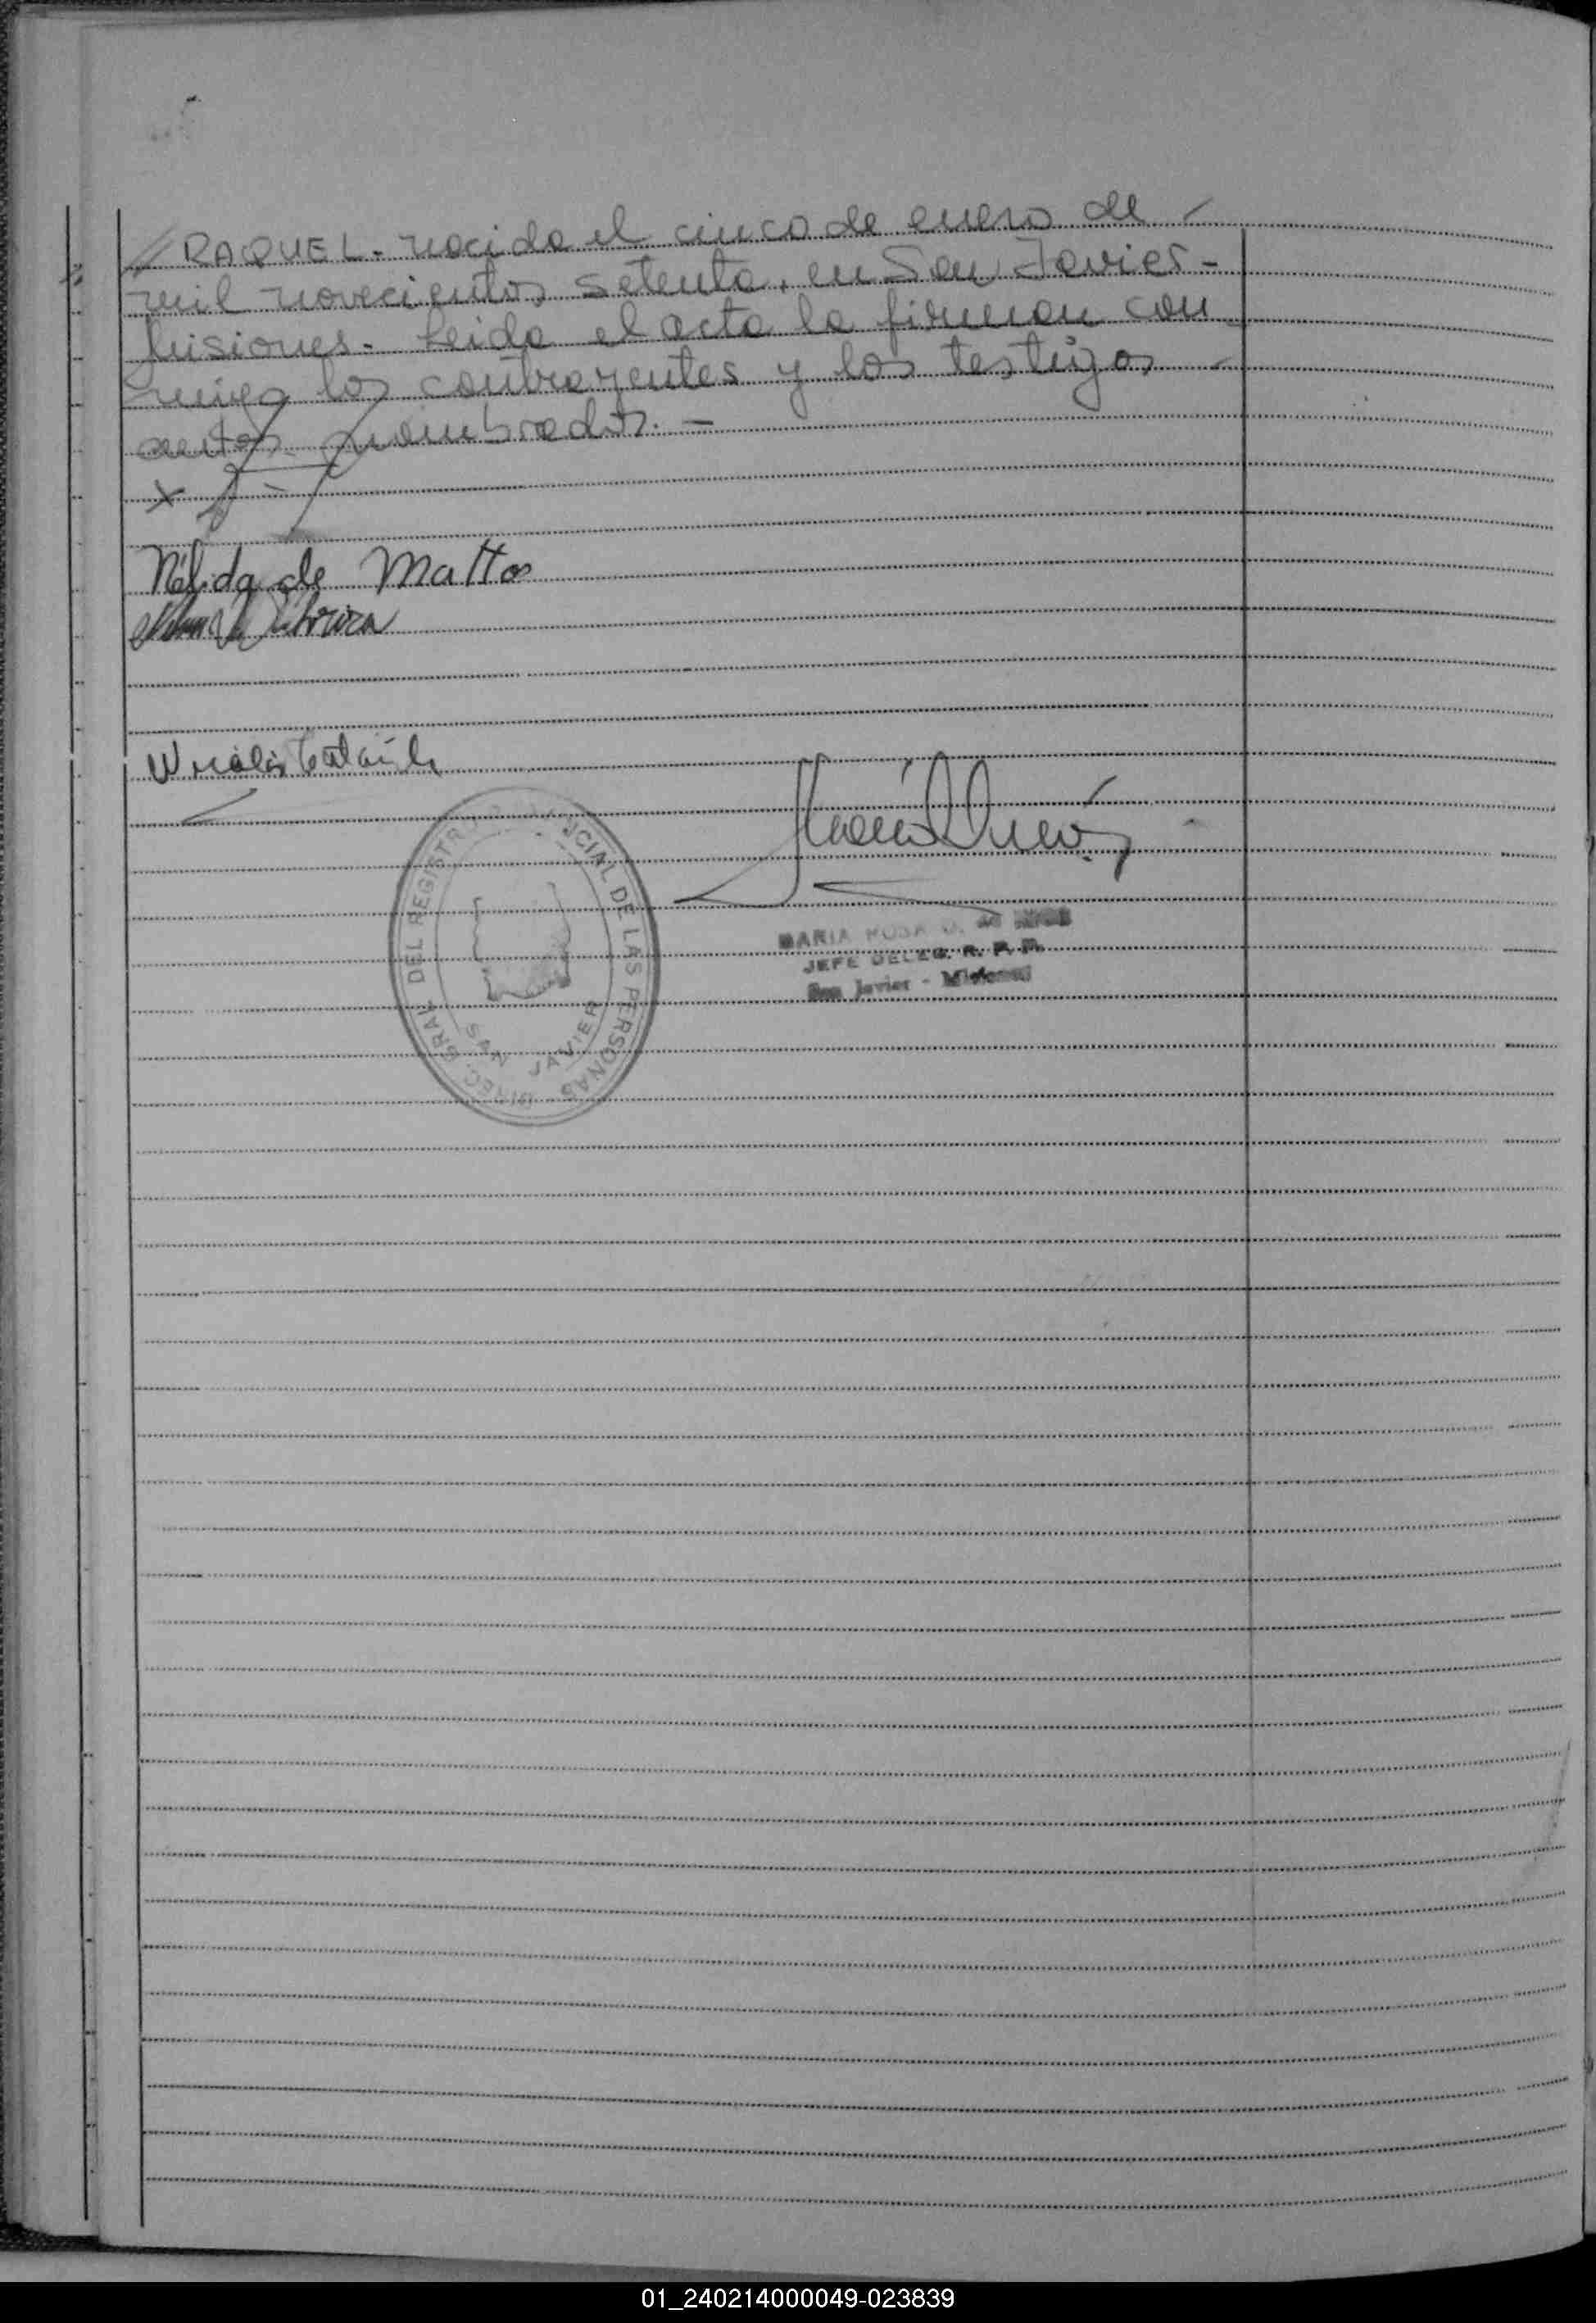 // RAQUEL - nacida el cinco de enero de -
mil novecientos setenta, en San Javier -
Misiones. Leida el acta la firman con
migo los contrayentes y los testigos -
antes nombrados. -
x
Nélida de Mattos
DIREC. GRAL DEL REGISTRO PROVINCIAL DE LAS PERSONAS
SAN JAVIER
MARIA ROSA
JEFE DELEG. R. P. P.
San Javier - Misiones
01_240214000049-023839